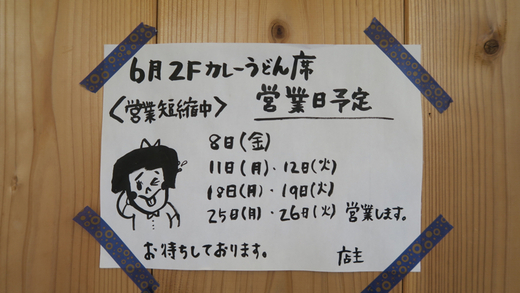 6月2Fカレーうどん席
営業日予定
〈営業短縮中〉
8日(金)
11日(月)・12日(火)
18日(月)・19日(火)
25日(月)・26日(火) 営業します。
お待ちしております。
店主